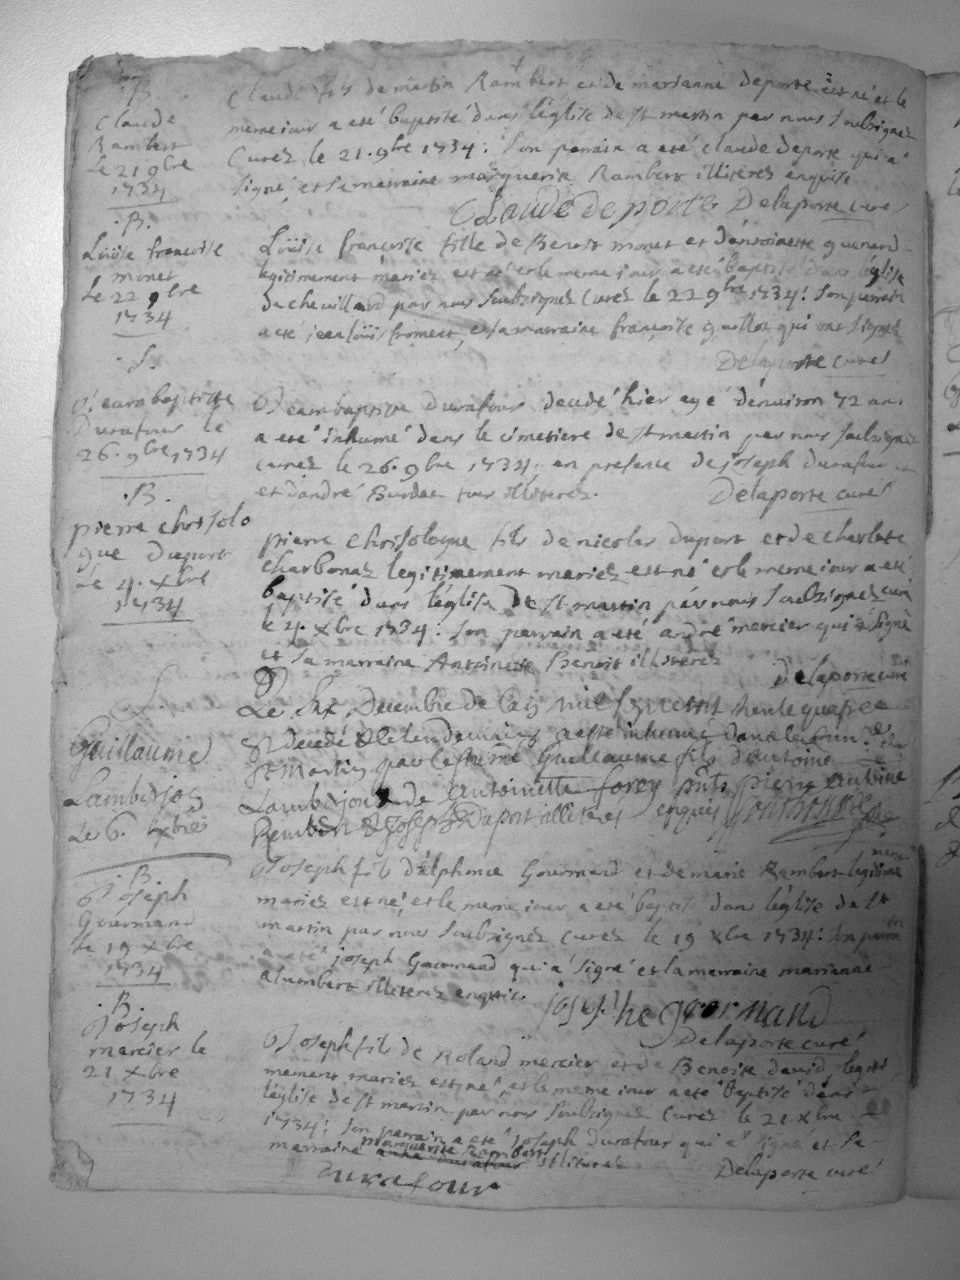 .B.
Claude
Rambert
Le 21 9bre
1734
Claude fils de martin Rambert et de marianne deporte est né et le
meme iour a eté baptisé dans l'église de st martin par nous soubsignez
Curez le 21. 9bre 1734: son parrain a eté claude deporte qui a
signé et sa marraine marguerite Rambert illiterez enquise
Claude deporte Delaporte curé
.B.
Loüise francoise
monet
Le 22 9bre
1734
Loüise francoise fille de Benoit monet et d'antoinette guenard
legitimement mariez est né et le meme iour a eté baptisé dans l'église
de chevillard par nous soubsignez Curez le 22 9bre 1734: son parrain
a eté jean loüis froment, et sa marraine francoise guillot qui ont signez
Delaporte curé
.S.
Jean baptiste
Durafour le
26. 9bre 1734
Jean baptiste Durafour decedé hier agé d'enuiron 72 ans
a eté inhumé dans le cimetiere de st martin par nous soubsignez
curez le 26. 9bre 1734: en presence de joseph durafour
et d'andré Burdet tous illiterez. Delaporte curé
.B.
pierre chrisolo
gue Duport
Le 4. xbre
1734
pierre chrisologue fils de nicolas duport et de charlote
charbonaz legitimement mariez est né et le meme iour a eté
baptisé dans l'église de st martin par nous soubsignez curé
le 4. xbre 1734. son parrain a eté andré mercier qui a signé
et sa marraine Antoinette Benoit illiterez
Delaporte curé
Guillaume
Lamberjon
Le 6. xbre
Le six Decembre de l'an mil sept cent trente quatre
est decedé et le lendemain a esté inhumé dans
St Martin par Guilleaume fils d'antoine
Lamberjon & de Antoinette forey pnts pierre antoine
Rembert & Joseph Duport illiteres enquis
.B.
Joseph
Gourmand
le 19 xbre
1734
Joseph fils d'elphonce Gourmand et de marie Rambert legitime
mariez est né et le meme iour a eté baptisé dans l'église de st
martin par nous soubsignez Curez le 19 xbre 1734: son parrain
a eté joseph Gourmand qui a signé et la marraine marianne
alumbert illiterez enquis.
josephe gormand
Delaporte curé
.B.
Joseph
mercier le
21 xbre
1734
Joseph fils de Roland mercier et de Benoite david legiti
mement mariez est né, et le meme iour a eté baptisé dans
l'église de st martin par nous soubsignez Curez le 21 xbre
1734: son parrain a eté joseph durafour qui a signé et sa
marguerite Rambert
marraine illiterez
Delaporte curé
durafour